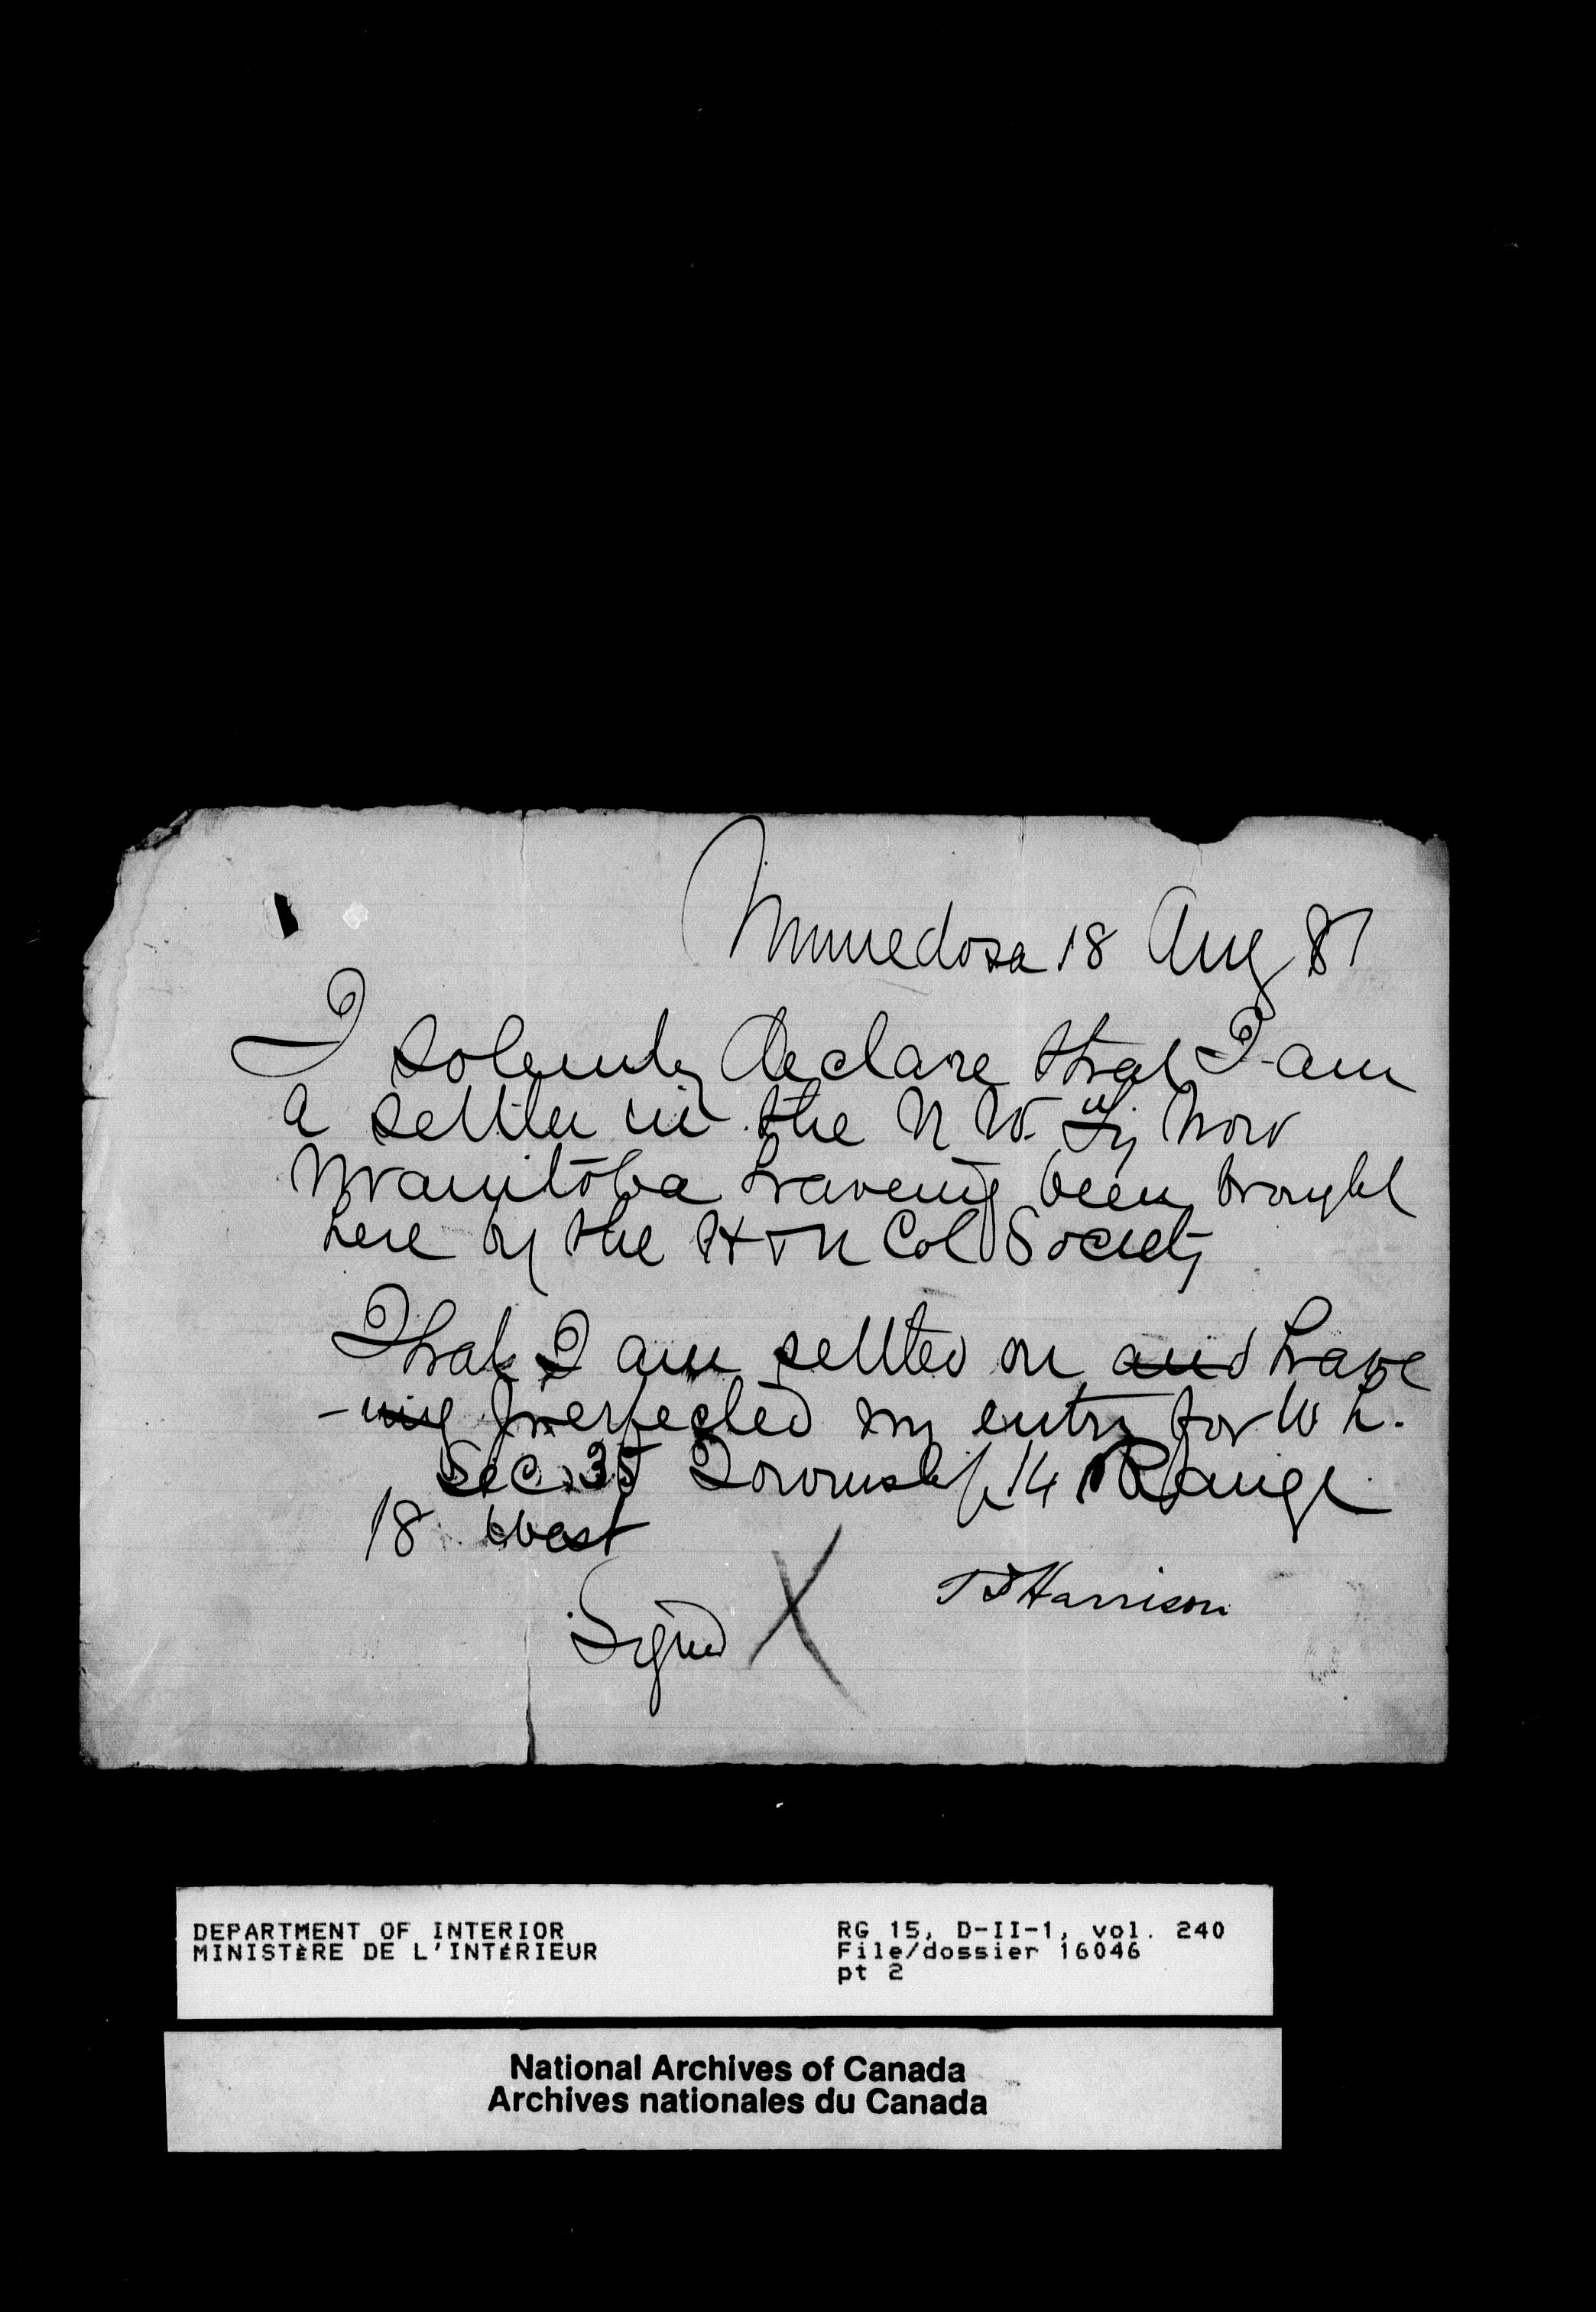 Minnedosa 18 Aug 81
I solemnly declare that I am
a settler in the N W. Ty now
Manitoba haveing been brought
here by the H & N Col Society
That I am settled on and have
-ing perfected my entry for W ½.
Sec. 35 Township 14 Range
18 West
T D Harrison
Signed X
DEPARTMENT OF INTERIOR
MINISTÈRE DE L'INTÉRIEUR
RG 15, D-II-1, vol. 240
File/dossier 16046
pt 2
National Archives of Canada
Archives nationales du Canada